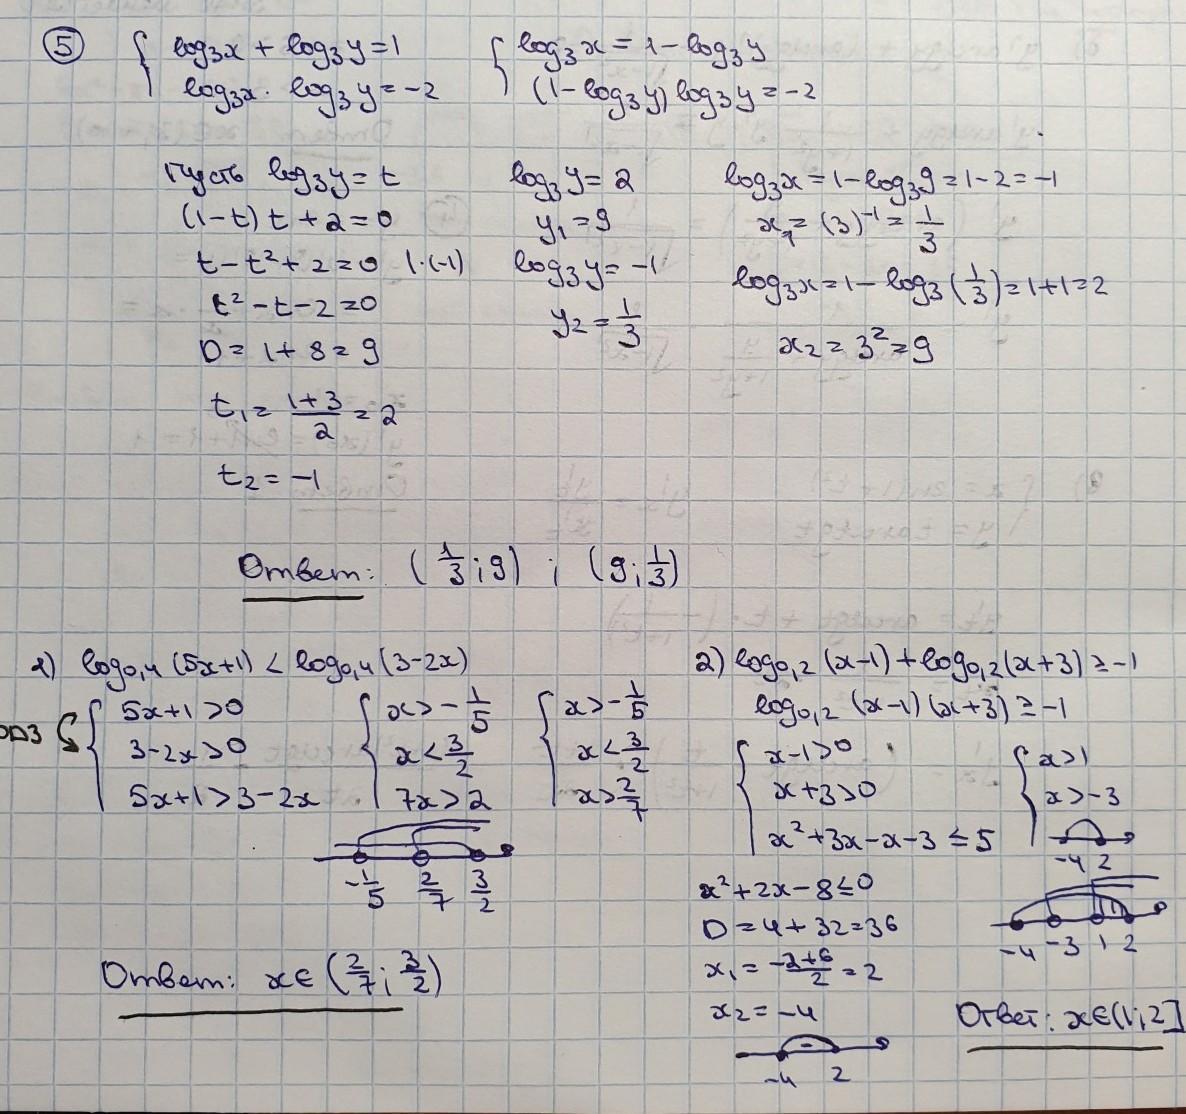 5
{ log₃x + log₃y = 1
log₃x · log₃y = -2
{ log₃x = 1 - log₃y
(1 - log₃y) log₃y = -2
Пусть log₃y = t
(1-t) t + 2 = 0
t - t² + 2 = 0 |·(-1)
t² - t - 2 = 0
D = 1 + 8 = 9
t₁ = (1+3)/2 = 2
t₂ = -1
log₃y = 2
y₁ = 9
log₃y = -1
y₂ = 1/3
log₃x = 1 - log₃9 = 1 - 2 = -1
x₁ = (3)⁻¹ = 1/3
log₃x = 1 - log₃(1/3) = 1 + 1 = 2
x₂ = 3² = 9
Ответ: (1/3; 9) ; (9; 1/3)
1) log₀,₄(5x+1) < log₀,₄(3-2x)
ОДЗ
{ 5x+1 > 0
3-2x > 0
5x+1 > 3-2x
{ x > -1/5
x < 3/2
7x > 2
{ x > -1/5
x < 3/2
x > 2/7
-1/5 2/7 3/2
Ответ: x ∈ (2/7; 3/2)
2) log₀,₂(x-1) + log₀,₂(x+3) ≥ -1
log₀,₂(x-1)(x+3) ≥ -1
{ x-1 > 0
x+3 > 0
x²+3x-x-3 ≤ 5
{ x > 1
x > -3
-4 2
x²+2x-8 ≤ 0
D = 4 + 32 = 36
x₁ = (-2+6)/2 = 2
x₂ = -4
-
-4 2
-4 -3 1 2
Ответ: x ∈ (1; 2]